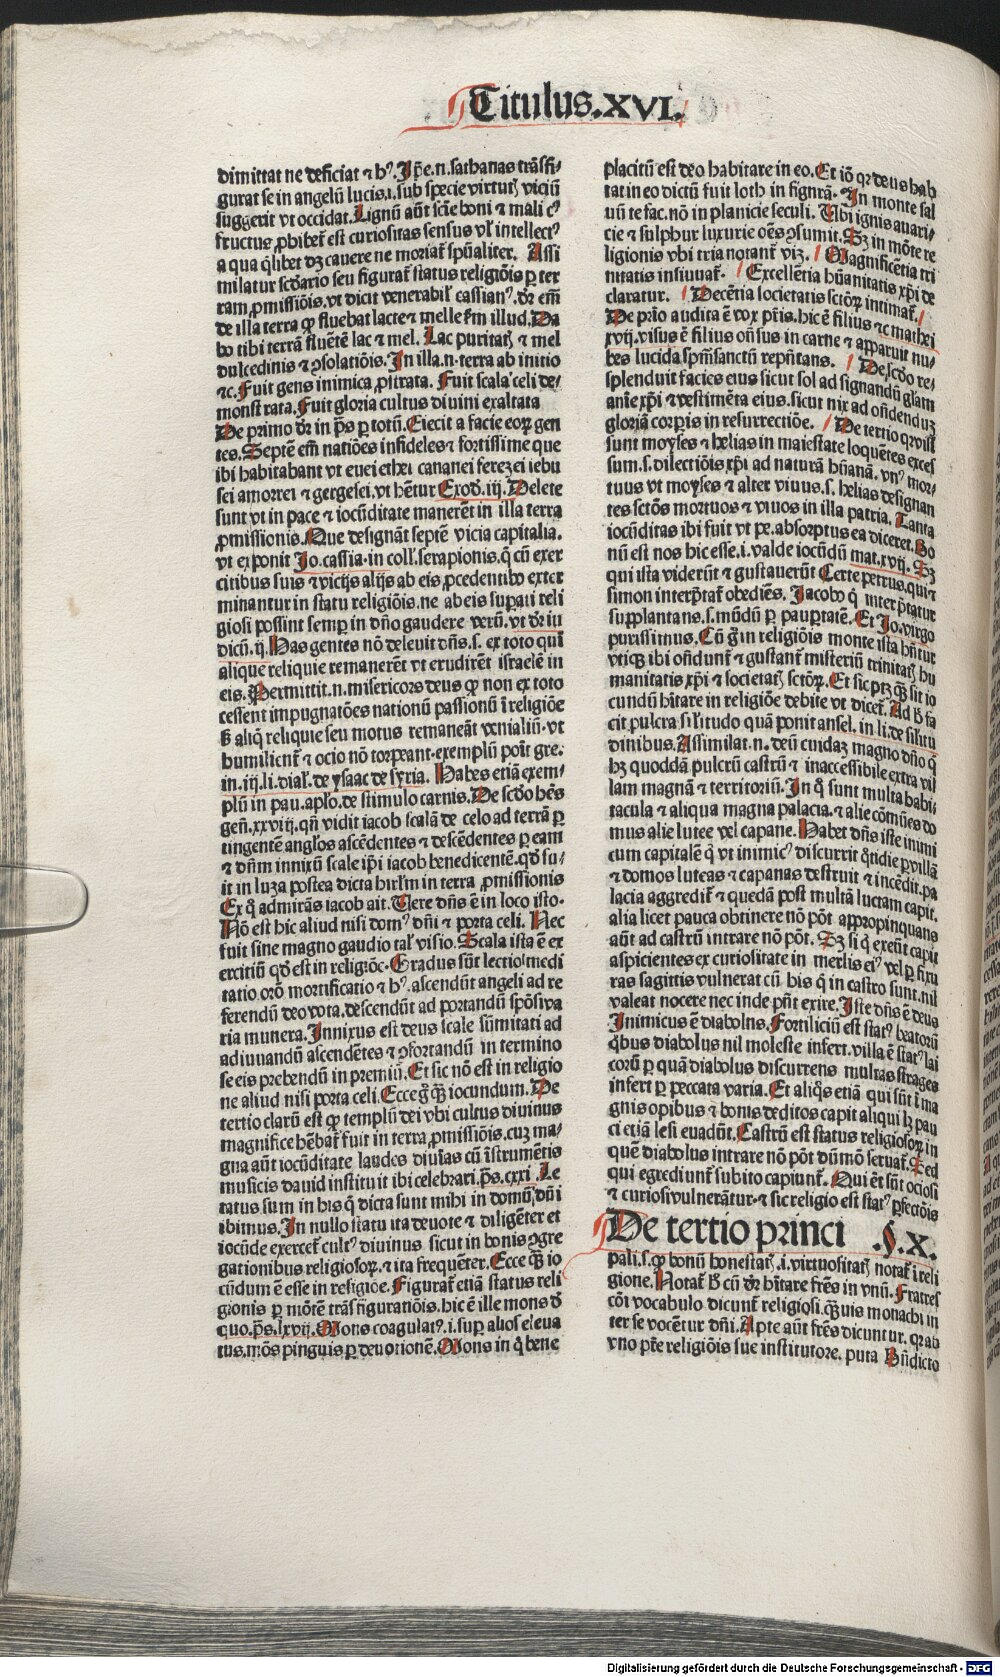 Titulus.XVI.
dimittat ne deficiat ⁊ hꝰ. Ip̄e.n. sathanas trāsfi⸗
gurat se in angelū lucis.i. sub specie virtutꝭ viciū
suggerit vt occidat. Lignū aūt scīe boni ⁊ mali cꝰ
fructus ꝓhibet᷑ est curiositas sensus vl̓ intellectꝰ
a qua q̄libet dꝫ cauere ne moriat᷑ spūaliter. Assi
milatur scḋario seu figurat᷑ status religiōis ꝑ ter
ram ꝓmissiōis. vt dicit venerabil̓ cassianꝰ. dr̄ em̄
de illa terra ꝙ fluebat lacte ⁊ melle scḋm illud. Da
bo tibi terrā fluētē lac ⁊ mel. Lac puritatꝭ ⁊ mel
dulcedinis ⁊ ꝯsolatiōis. In illa.n. terra ab initio
⁊c. Fuit gens inimica ꝓstrata. Fuit scala celi de⸗
monstrata. Fuit gloria cultus diuini exaltata
De primo dr̄ in p̄s ꝑ totū. Eiecit a facie eoꝝ gen
tes. Septē em̄ natiōes infideles ⁊ fortissime que
ibi habitabant vt euei ethei cananei ferezei iebu
sei amorrei ⁊ gergesei. vt hētur Exod̓. iij. Delete
sunt vt in pace ⁊ iocūditate manerēt in illa terra
ꝓmissionis. Que designāt septē vicia capitalia.
vt exponit Jo. cassia. in coll̓. serapionis. q̄ cū exer
citibus suis ⁊ vicijs alijs ab eis ꝓcedentibꝰ exter
minantur in statu religiōis. ne ab eis suꝑati reli
giosi possint semꝑ in dn̄o gaudere verū. vt dr̄ iu
dicū. ij. Has gentes nō deleuit dn̄s. s. ex toto qui
alique reliquie remanerēt vt erudirent israelē in
eis. Permittit.n. misericors deus ꝙ non ex toto
cessent impugnatōes nationū passionū ī religiōe
ß aliq̄ reliquie seu motus remaneāt venialiū. vt
humilient᷑ ⁊ ocio nō torpeant. exemplū poīt gre.
in. iij. li. dial̓. de ysaac de syria. Habes etiā exem⸗
plū in pau. apl̓o. de stimulo carnis. De scḋo hēs
gen̄. xxviij. qn̄ vidit iacob scalā de celo ad terrā ꝑ
tingentē angl̓os ascēdētes ⁊ descēdētes ꝑ eam
⁊ dn̄m innixū scale ip̄i iacob benedicentē. qd̓ fu⸗
it in luza postea dicta birl̓m in terra ꝓmissionis
Ex q̄ admirās iacob ait. Uere dn̄s ē in loco isto.
Nō est hic aliud nisi domꝰ dn̄i ⁊ porta celi. Nec
fuit sine magno gaudio tal̓ visio. Scala ista ē ex
ercitiū qd̓ est in religiōe. Gradus sūt lectio medi
tatio orō mortificatio ⁊ hꝰ. ascendūt angeli ad re
ferendū deo vota. descendūt ad portandū spōsiua
ria munera. Innixus est deus scale sūmitati ad
adiuuandū ascendētes ⁊ ꝯfortandū in termino
se eis prebendū in premiū. Et sic nō est in religio
ne aliud nisi porta celi. Ecce g̊ ꝙ̄ iocundum. De
tertio clarū est ꝙ templū dei vbi cultus diuinus
magnifice hēbat᷑ fuit in terra ꝓmissiōis. cuꝫ ma⸗
gna aūt iocūditate laudes diuīas cū īstrumētis
musicis dauid instituit ibi celebrari. p̄s. cxxi. Le
tatus sum in his q̄ dicta sunt mihi in domū dn̄i
ibimus. In nullo statu ita deuote ⁊ diligēter et
iocūde exercet᷑ cultꝰ diuinus sicut in bonis ꝯgre
gationibus religiosoꝝ. ⁊ ita frequēter. Ecce ꝙ̄ io
cūdum ē esse in religiōe. Figurat᷑ etiā status reli
gionis ꝑ mōtē trāsfigurationis. hic ē ille mons d̓
quo. p̄s. lxvij. Mons coagulatꝰ. i. suꝑ alios eleua
tus. mōs pinguis ꝑ deuotionē. Mons in q̄ bene
placitū est deo habitare in eo. Et iō qꝛ deus hab
tat in eo dictū fuit loth in figura. In monte sal
uū te fac. nō in planicie seculi. Ubi ignis auari⸗
cie ⁊ sulphur luxurie oēs ꝯsumit. Sꝫ in mōte re
ligionis vbi tria notant᷑ viꝫ. Magnificētia tri
nitatis insinuat᷑. Excellētia hūanitatis xp̄i de
claratur. Decētia societatis sctōꝝ intimat᷑.
De prīo audita ē vox pr̄is. hic ē filius ⁊c mathei
xvij. visus ē filius on̄sus in carne ⁊ apparuit nu⸗
bes lucida spm̄sanctū rep̄ntans. De scḋo re⸗
splenduit facies eius sicut sol ad signandū gl̓am
anīe xp̄i ⁊ vestimēta eius. sicut nix ad on̄denduꝫ
gloriā corpis in resurrectiōe. De tertio qꝛ visi
sunt moyses ⁊ helias in maiestate loquētes exces
sum. s. dilectiōis xp̄i ad naturā hūanā. vnꝰ mor⸗
tuus vt moyses ⁊ alter viuus. s. helias designan
tes sctōs mortuos ⁊ viuos in illa patria. Tanta
iocūditas ibi fuit vt pe. absorptus ea diceret. Bo
nū est nos hic esse. i. valde iocūdū mat. xvij. Sꝫ
qui ista viderūt ⁊ gustauerūt Certe petrus. qui ⁊
simon interp̄tat᷑ obediēs. Jacobꝰ q̄ interp̄tatur
supplantans. s. mūdū ꝑ pauꝑtatē. Et Jo. virgo
purissimus. Cū g̊ in religiōis monte ista hn̄tur
vtiqꝫ ibi on̄dunt᷑ ⁊ gustant᷑ misteriū trinitatꝭ hu
manitatis xp̄i ⁊ societatꝭ sctōꝝ. Et sic ptꝫ ꝙ̄ sit io
cundū hītare in religiōe debite vt dicet᷑. Ad h̓ fa
cit pulcra sil̓itudo quā ponit ansel. in li. de sil̓itu
dinibus. Assimilat.n. deū cuidaꝫ magno dn̄o q̄
hꝫ quoddā pulcrū castrū ⁊ inaccessibile extra vil
lam magnā ⁊ territoriū. In q̄ sunt multa habi⸗
tacula ⁊ aliqua magna palacia. ⁊ alie cōmūes do
mus alie lutee vel capane. Habet dn̄s iste inimi
cum capitalē q̄ vt inimicꝰ discurrit q̄tidie ꝑ villā
⁊ domos luteas ⁊ capanas destruit ⁊ incēdit. pa
lacia aggredit᷑ ⁊ quedā post multā luctam capit.
alia licet pauca obtinere nō pōt appropinquans
aūt ad castrū intrare nō pōt. Sꝫ si q̄ exeūt capit
aspicientes ex curiositate in merlis eiꝰ vel ꝑ fixu
ras sagittis vulnerat cū his q̄ in castro sunt. nil
valeat nocere nec inde pn̄t exire. Iste dn̄s ē deus
Inimicus ē diabolus. Fortiliciū est statꝰ beatorū
q̄bus diabolus nil moleste infert. villa ē statꝰ lai
corū ꝑ quā diabolus discurrens multas strages
infert ꝑ peccata varia. Et aliq̄s etiā qui sūt ī ma
gnis opibus ⁊ bonis deditos capit aliqui h̓ pau
ci etiā lesi euadūt. Castrū est status religiosoꝝ in
quē diabolus intrare nō pōt dūmō seruat᷑. Sed
qui egrediunt᷑ subito capiunt᷑. Qui ēt sūt ociosi
⁊ curiosi vulnerātur. ⁊ sic religio est statꝰ ꝑfectōis
De tertio princi .§.X.
pali. s. ꝙ bonū honestatꝭ. i. virtuositatꝭ notat᷑ ī reli
gione. Notat᷑ h̓ cū dr̄ hītare frēs in vnū. Fratres
cōi vocabulo dicunt᷑ religiosi. ꝙ̄uis monachi in
ter se vocētur dn̄i. Apte aūt frēs dicuntur. qꝛ ab
vno pr̄e religiōis sue institutore. puta Bn̄dicto
Digitalisierung gefördert durch die Deutsche Forschungsgemeinschaft - DFG